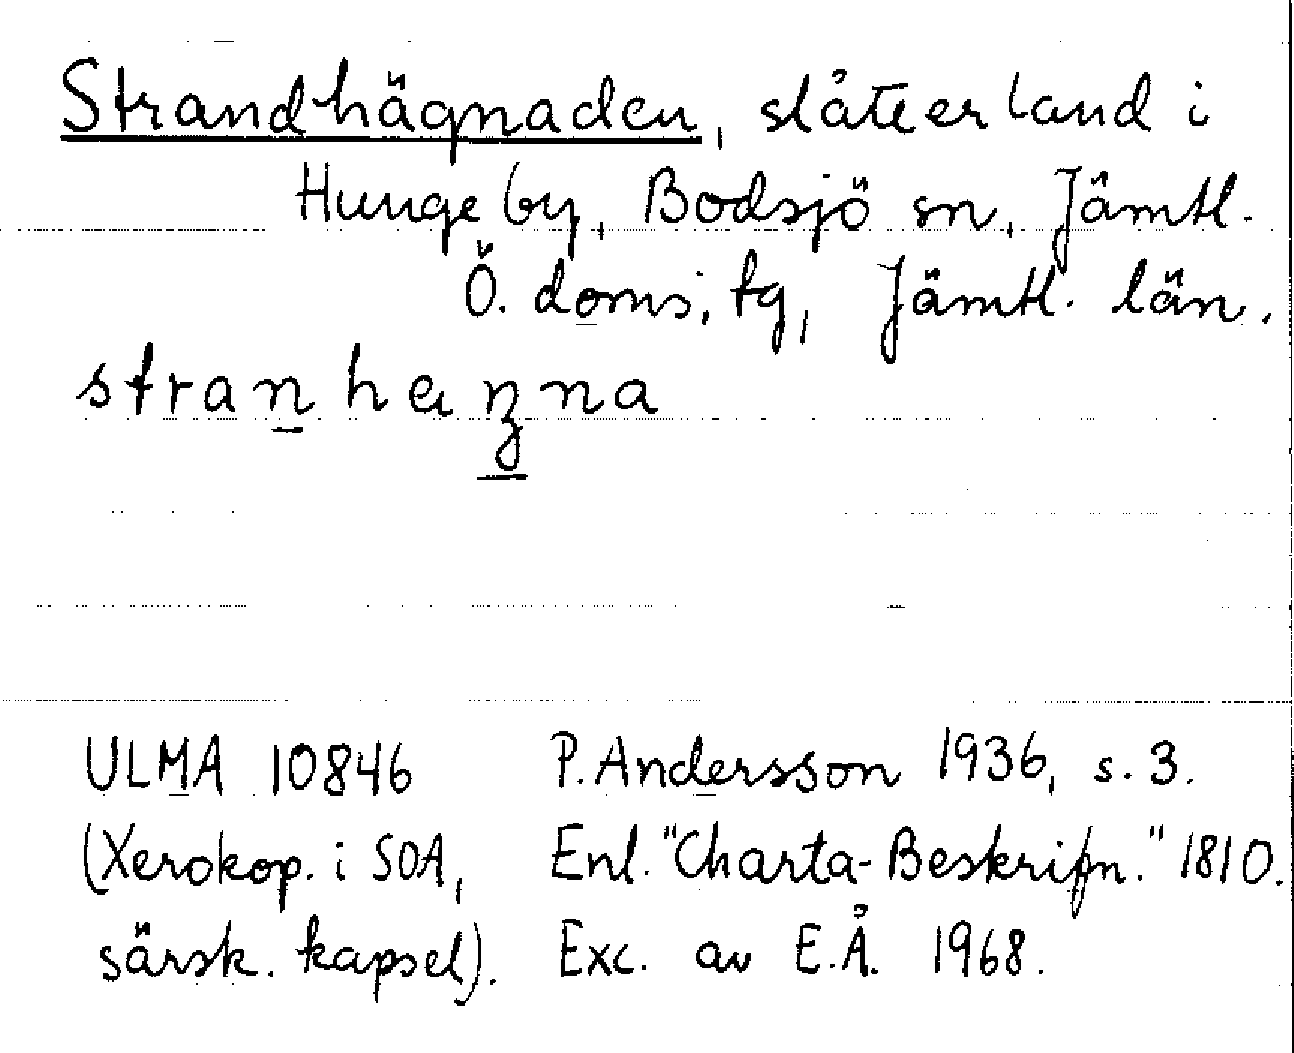 Strandhägnaden, slåtterland i
Hunge by, Bodsjö sn, Jämtl.
Ö. doms. tg, Jämtl. län.
ULMA 10846 P. Andersson 1936, s. 3.
(Xerokop. i SOA, Enl. "Charta-Beskrifn." 1810.
särsk. kapsel). Exc. av E.Å. 1968.